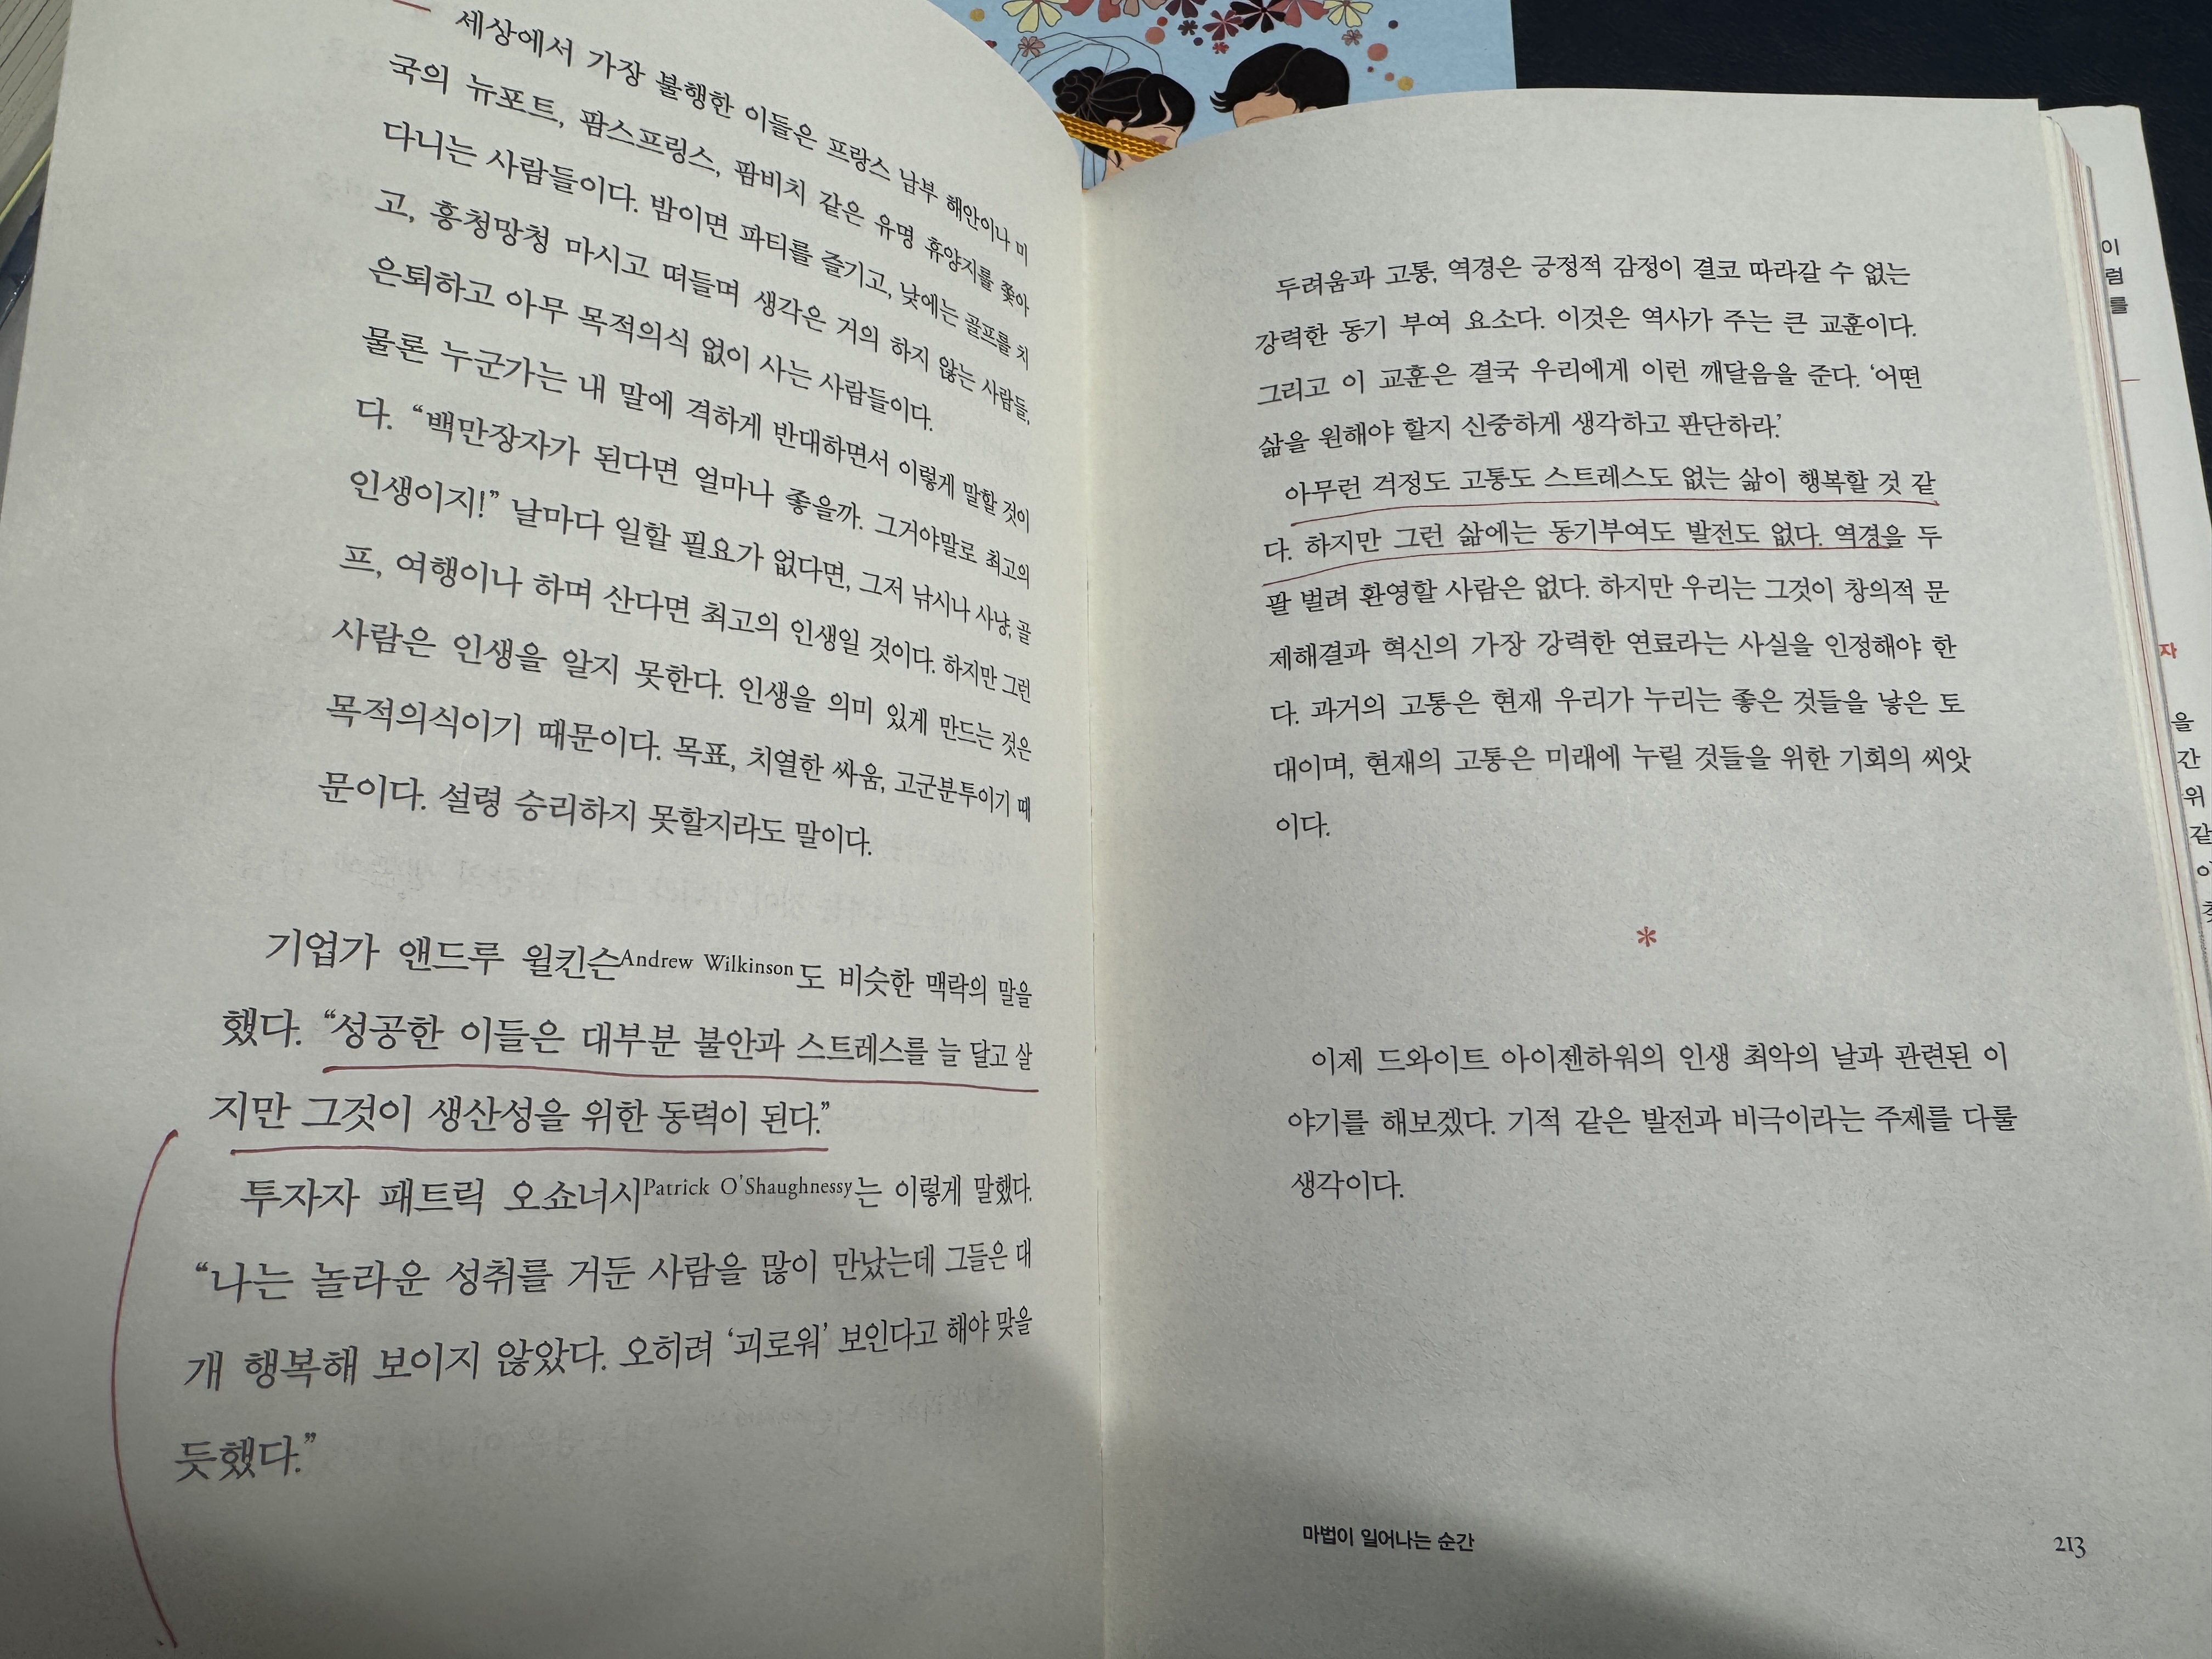 세상에서 가장 불행한 이들은 프랑스 남부 해안이나 미
국의 뉴포트, 팜스프링스, 팜비치 같은 유명 휴양지를 쫓아
다니는 사람들이다. 밤이면 파티를 즐기고, 낮에는 골프를 치
고, 흥청망청 마시고 떠들며 생각은 거의 하지 않는 사람들,
은퇴하고 아무 목적의식 없이 사는 사람들이다.
물론 누군가는 내 말에 격하게 반대하면서 이렇게 말할 것이
다. “백만장자가 된다면 얼마나 좋을까. 그거야말로 최고의
인생이지!” 날마다 일할 필요가 없다면, 그저 낚시나 사냥, 골
프, 여행이나 하며 산다면 최고의 인생일 것이다. 하지만 그런
사람은 인생을 알지 못한다. 인생을 의미 있게 만드는 것은
목적의식이기 때문이다. 목표, 치열한 싸움, 고군분투이기 때
문이다. 설령 승리하지 못할지라도 말이다.
기업가 앤드루 윌킨슨Andrew Wilkinson도 비슷한 맥락의 말을
했다. “성공한 이들은 대부분 불안과 스트레스를 늘 달고 살
지만 그것이 생산성을 위한 동력이 된다.”
투자자 패트릭 오쇼너시Patrick O'Shaughnessy는 이렇게 말했다.
“나는 놀라운 성취를 거둔 사람을 많이 만났는데 그들은 대
개 행복해 보이지 않았다. 오히려 ‘괴로워’ 보인다고 해야 맞을
듯했다.”
두려움과 고통, 역경은 긍정적 감정이 결코 따라갈 수 없는
강력한 동기 부여 요소다. 이것은 역사가 주는 큰 교훈이다.
그리고 이 교훈은 결국 우리에게 이런 깨달음을 준다. ‘어떤
삶을 원해야 할지 신중하게 생각하고 판단하라.’
아무런 걱정도 고통도 스트레스도 없는 삶이 행복할 것 같
다. 하지만 그런 삶에는 동기부여도 발전도 없다. 역경을 두
팔 벌려 환영할 사람은 없다. 하지만 우리는 그것이 창의적 문
제해결과 혁신의 가장 강력한 연료라는 사실을 인정해야 한
다. 과거의 고통은 현재 우리가 누리는 좋은 것들을 낳은 토
대이며, 현재의 고통은 미래에 누릴 것들을 위한 기회의 씨앗
이다.
*
이제 드와이트 아이젠하워의 인생 최악의 날과 관련된 이
야기를 해보겠다. 기적 같은 발전과 비극이라는 주제를 다룰
생각이다.
마법이 일어나는 순간
213
이
럼
를
자
을
간
위
같